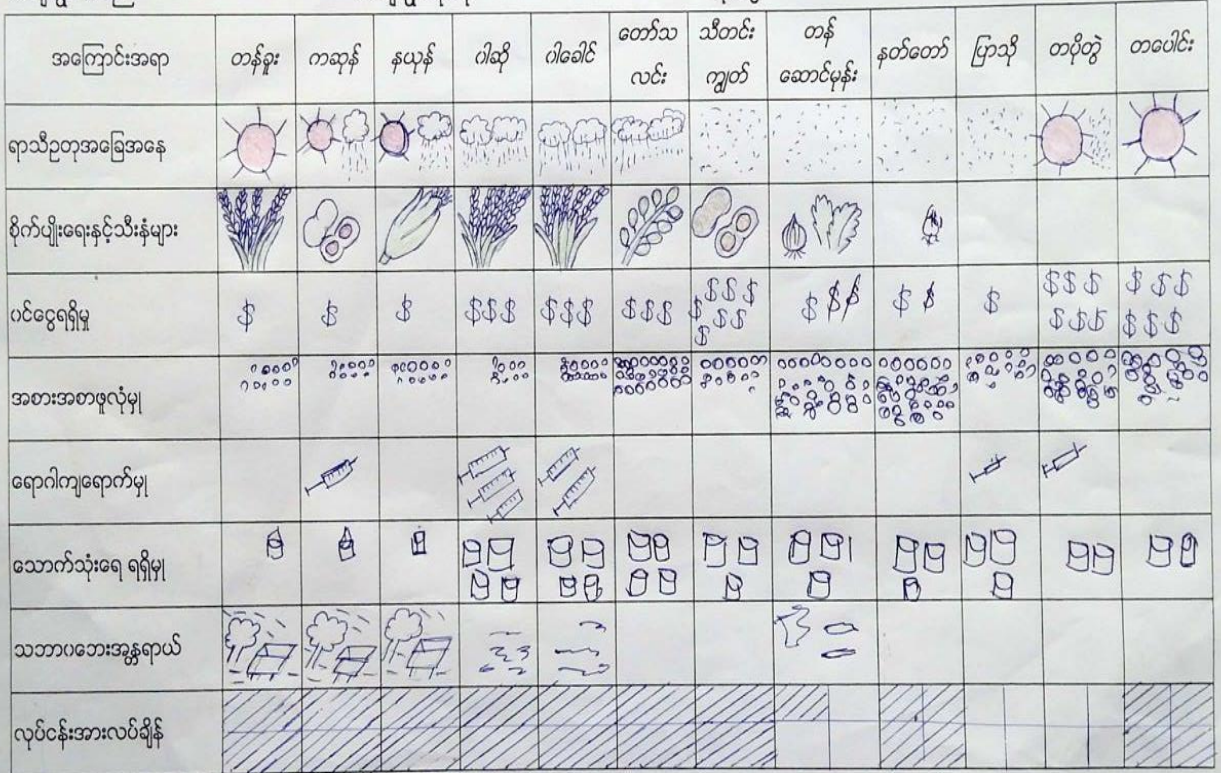 အကြောင်းအရာ တန်ခူး ကဆုန် နယုန် ဝါဆို ဝါခေါင် တော်သ သီတင်း တန် နတ်တော် ပြာသို တပို့တွဲ တပေါင်း
လင်း ကျွတ် ဆောင်မုန်း
ရာသီဥတုအခြေအနေ
စိုက်ပျိုးရေးနှင့်သီးနှံများ
ဝင်ငွေရရှိမှု $ $ $ $$$ $$$ $$$ $$$$ $$$ $$ $ $$$ $$$
$$$ $$$ $$$
အစားအစာဖူလုံမှု
ရောဂါကျရောက်မှု
သောက်သုံးရေ ရရှိမှု
သဘာဝဘေးအန္တရာယ်
လုပ်ငန်းအားလပ်ချိန်